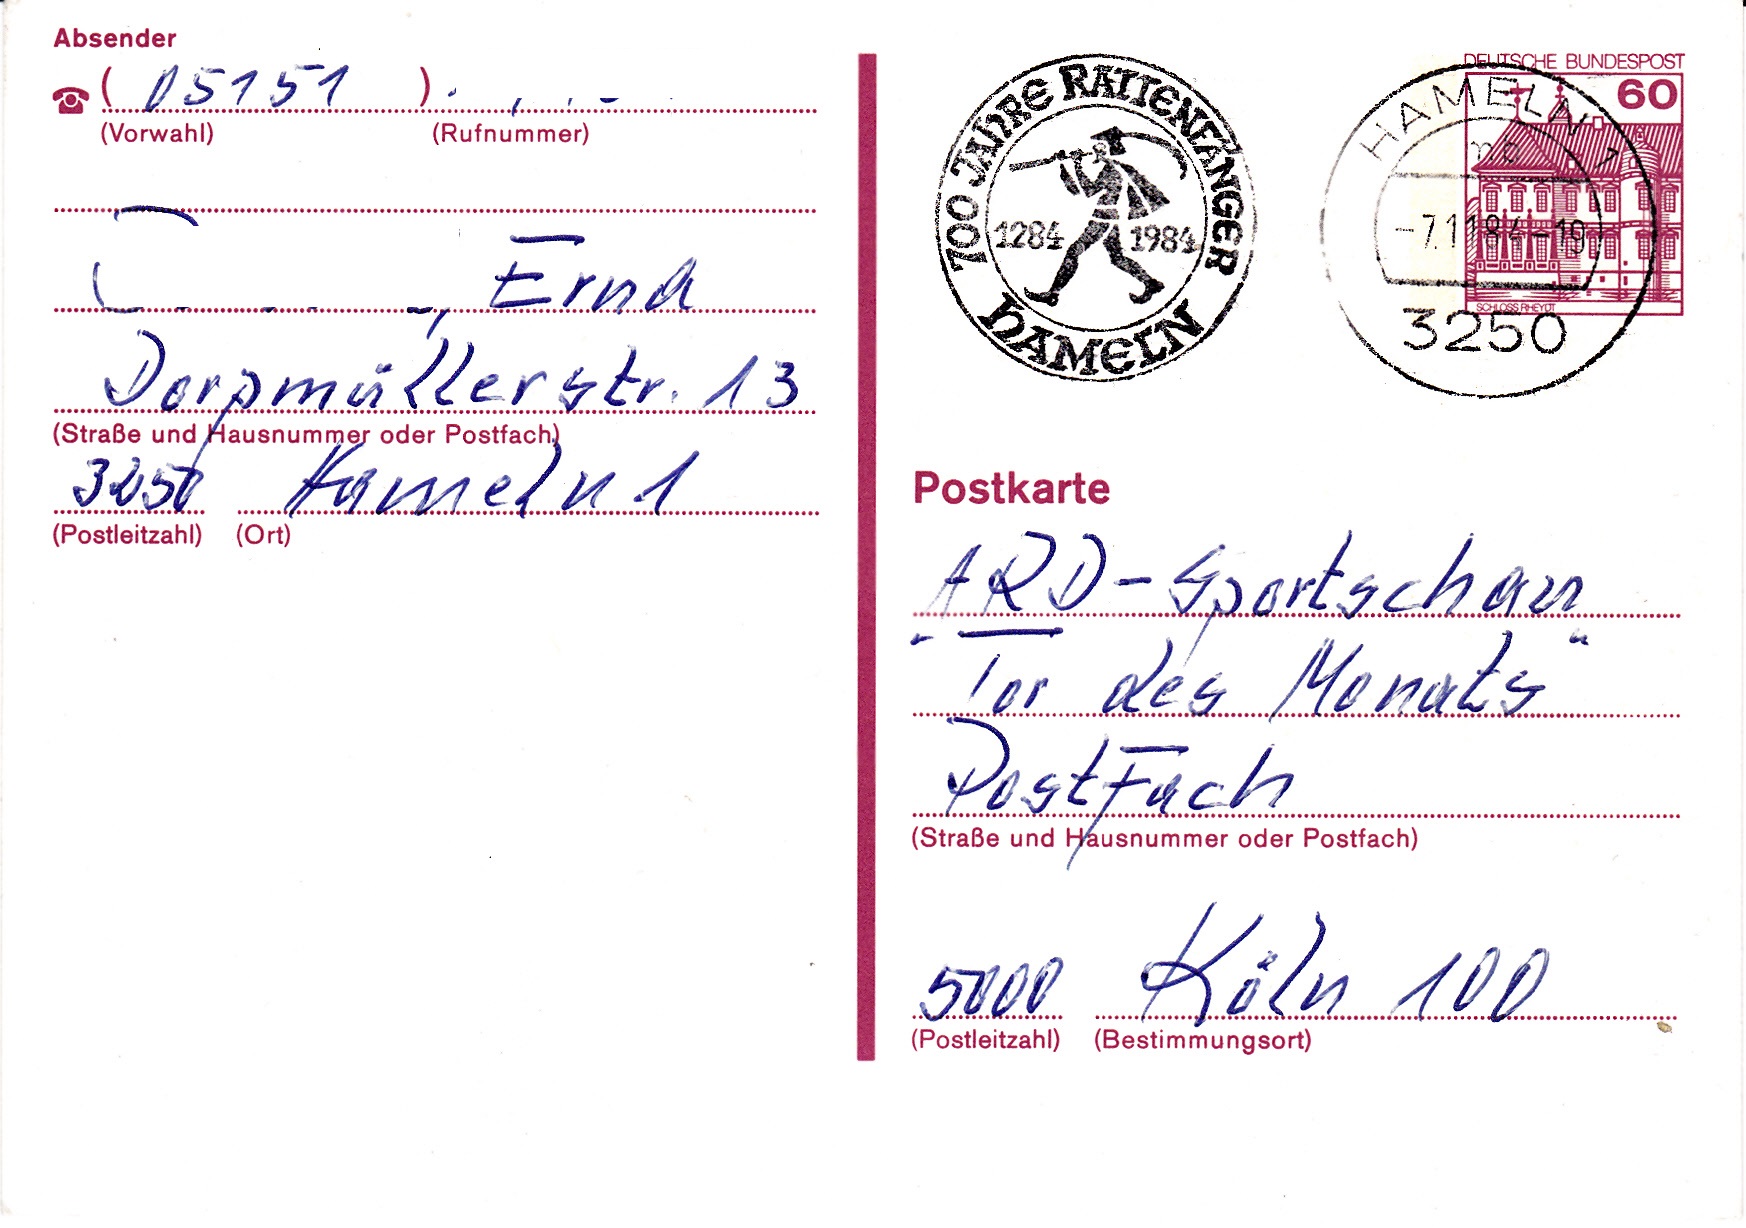 Absender
( 05151 )
(Vorwahl) (Rufnummer)
, Erna
Dorpmüllerstr. 13
(Straße und Hausnummer oder Postfach)
3250 Hameln 1
(Postleitzahl) (Ort)
700 JAHRE RATTENFÄNGER
1284 1984
HAMELN
DEUTSCHE BUNDESPOST
60
SCHLOSS RHEYDT
HAMELN 1
-7.11.84-19
3250
Postkarte
ARD-Sportschau
"Tor des Monats"
Postfach
(Straße und Hausnummer oder Postfach)
5000 Köln 100
(Postleitzahl) (Bestimmungsort)